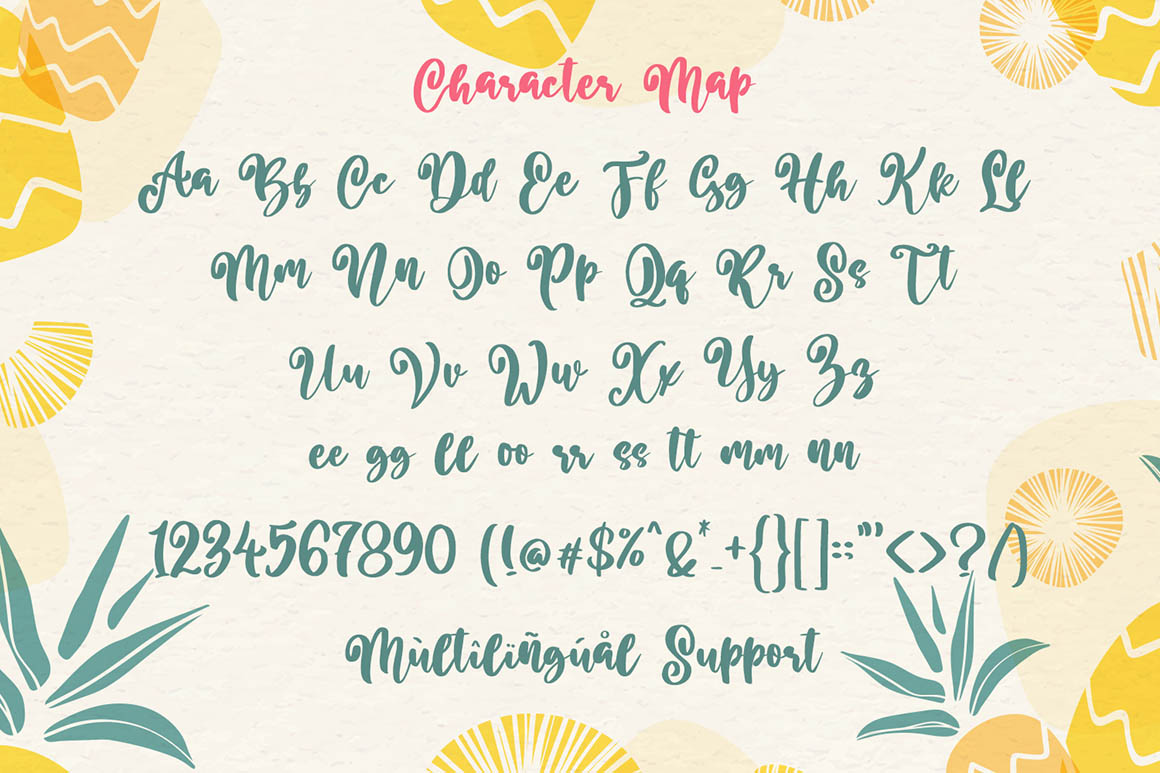 Character Map
Aa Bb Cc Dd Ee Ff Gg Hh Kk Ll
Mm Nn Oo Pp Qq Rr Ss Tt
Uu Vv Ww Xx Yy Zz
ee gg ll oo rr ss tt mm nn
1234567890 (!@#$%^&*_+{}[]:;"'<>?/\)
Mùltîlïñgúål Support